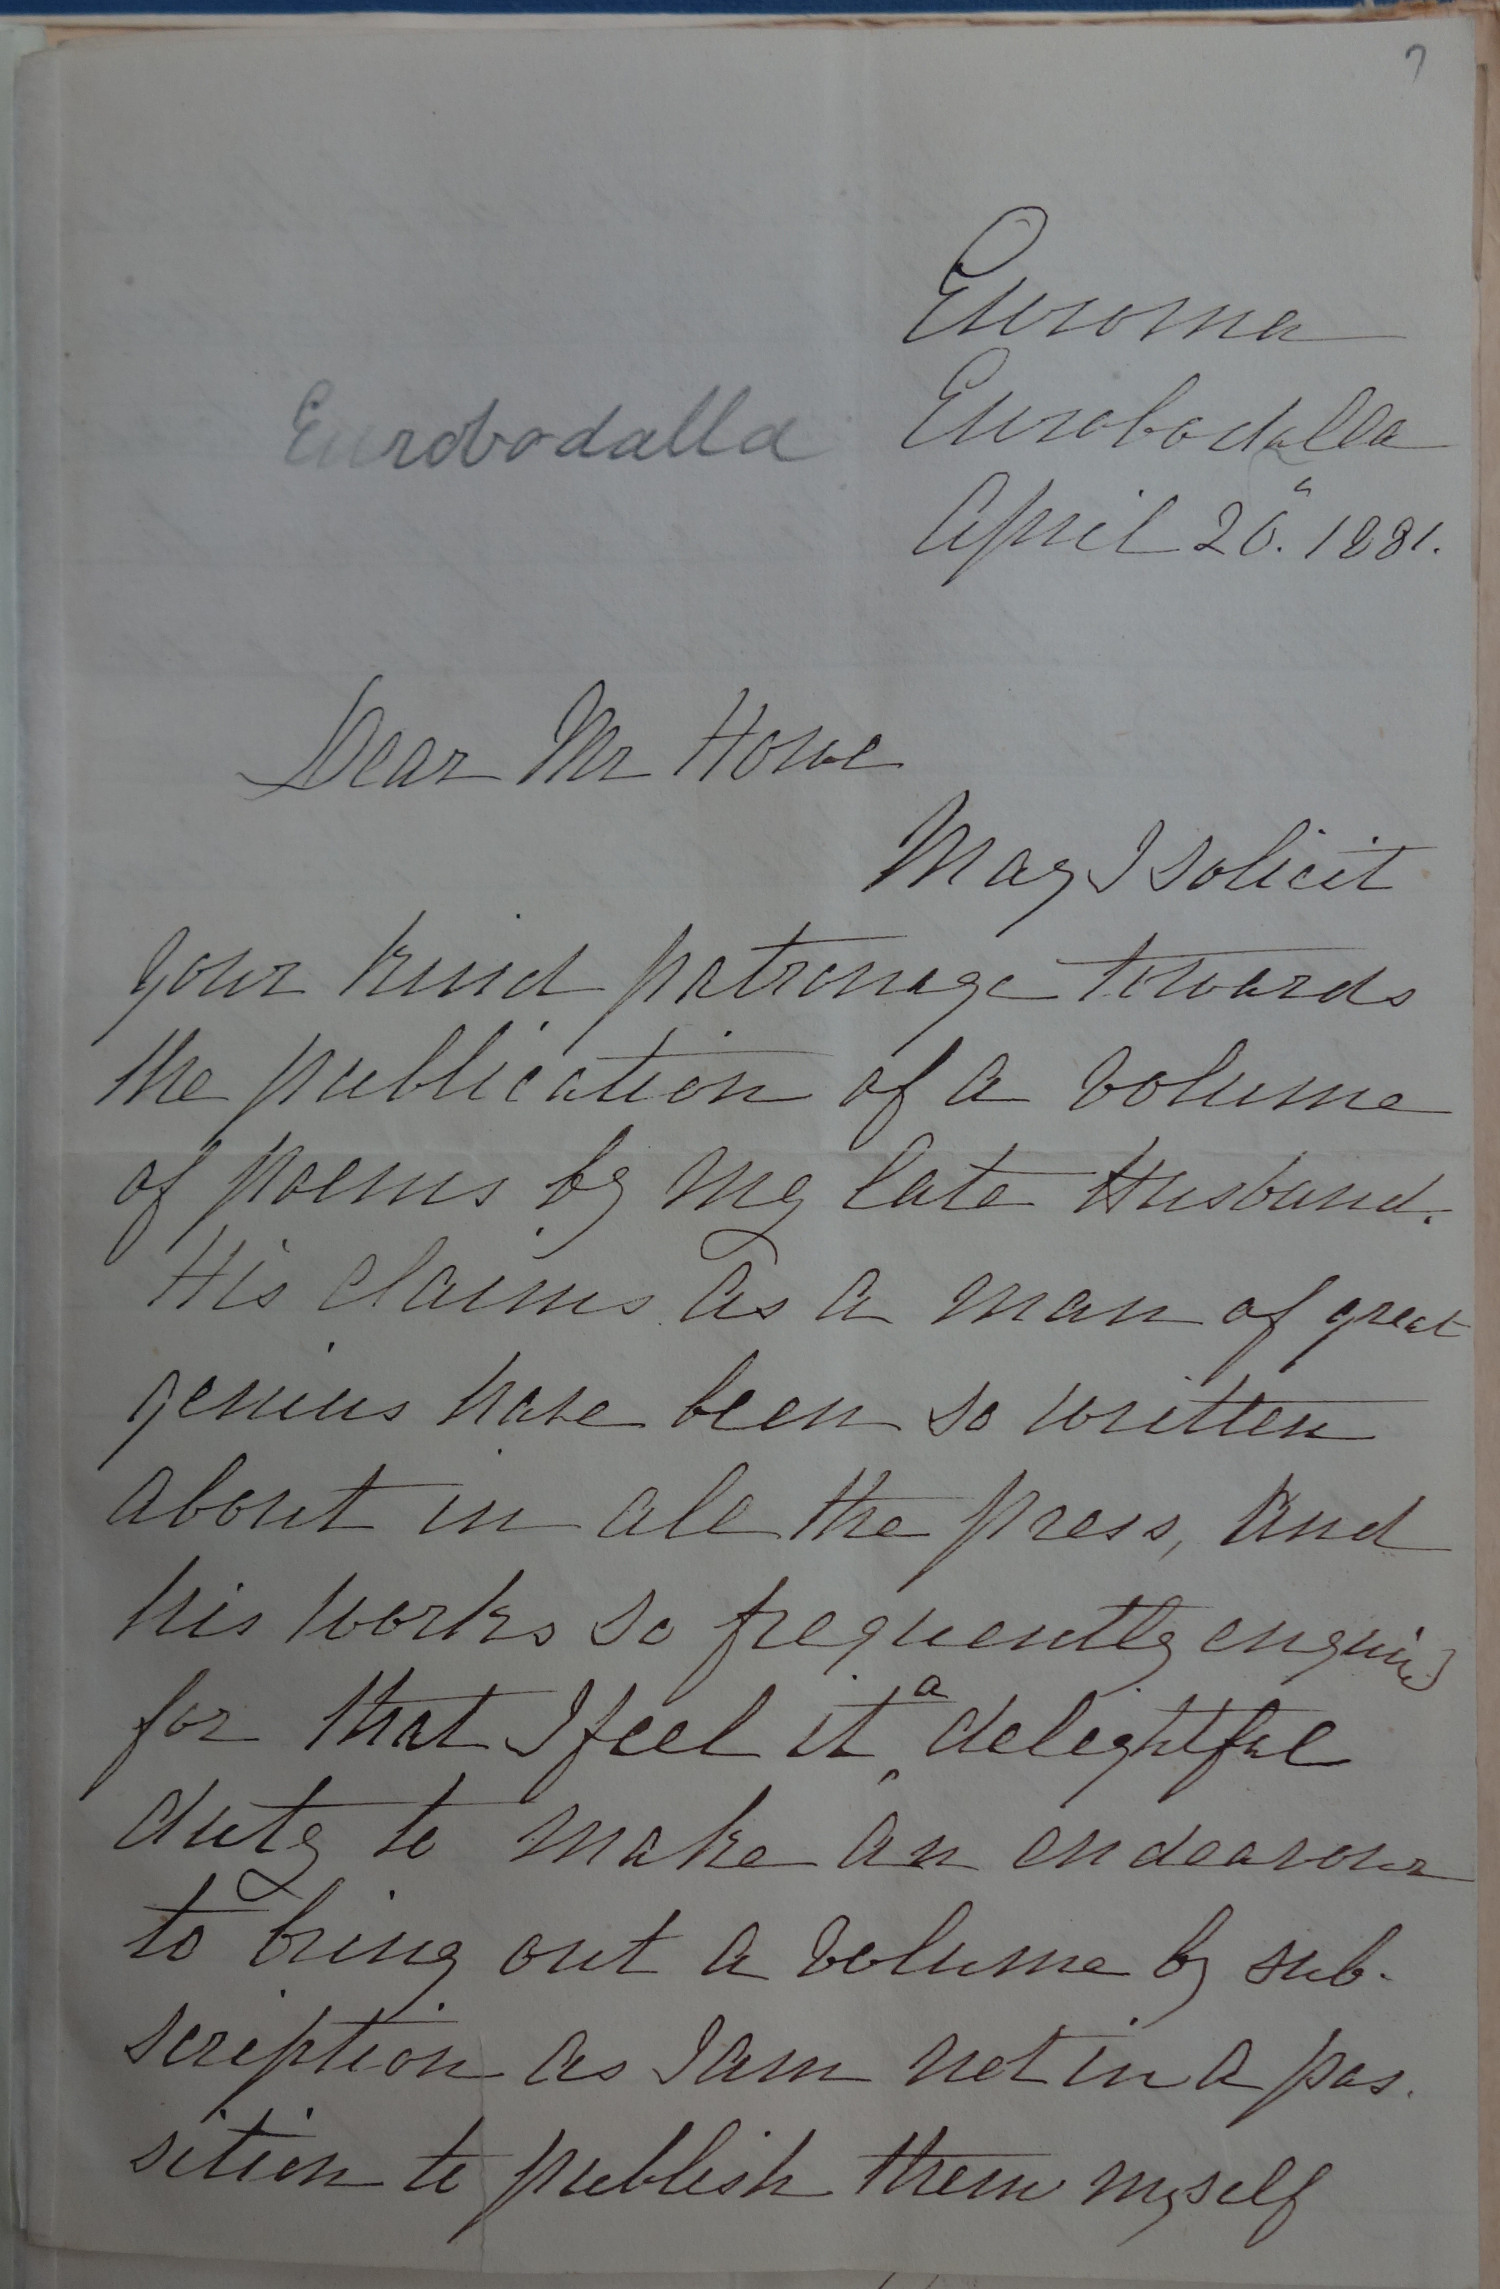 7
Euroma
Eurobodalla
Eurobodalla
April 26". 1881.
Dear Mr Howe
May I solicit
your kind patronage towards
the publication of a volume
of poems by my late Husband.
His claims as a man of great
genius have been so written
about in all the press, and
his works so frequently enquired
for that I feel it a delightful
duty to make an endeavour
to bring out a volume by sub-
scription as I am not in a pos-
sition to publish them myself